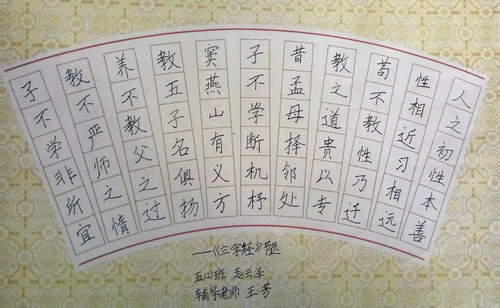 人之初性本善
性相近习相远
苟不教性乃迁
教之道贵以专
昔孟母择邻处
子不学断机杼
窦燕山有义方
教五子名俱扬
养不教父之过
教不严师之情
子不学非所宜
——《三字经》节选
五(2)班
辅导老师 王芳